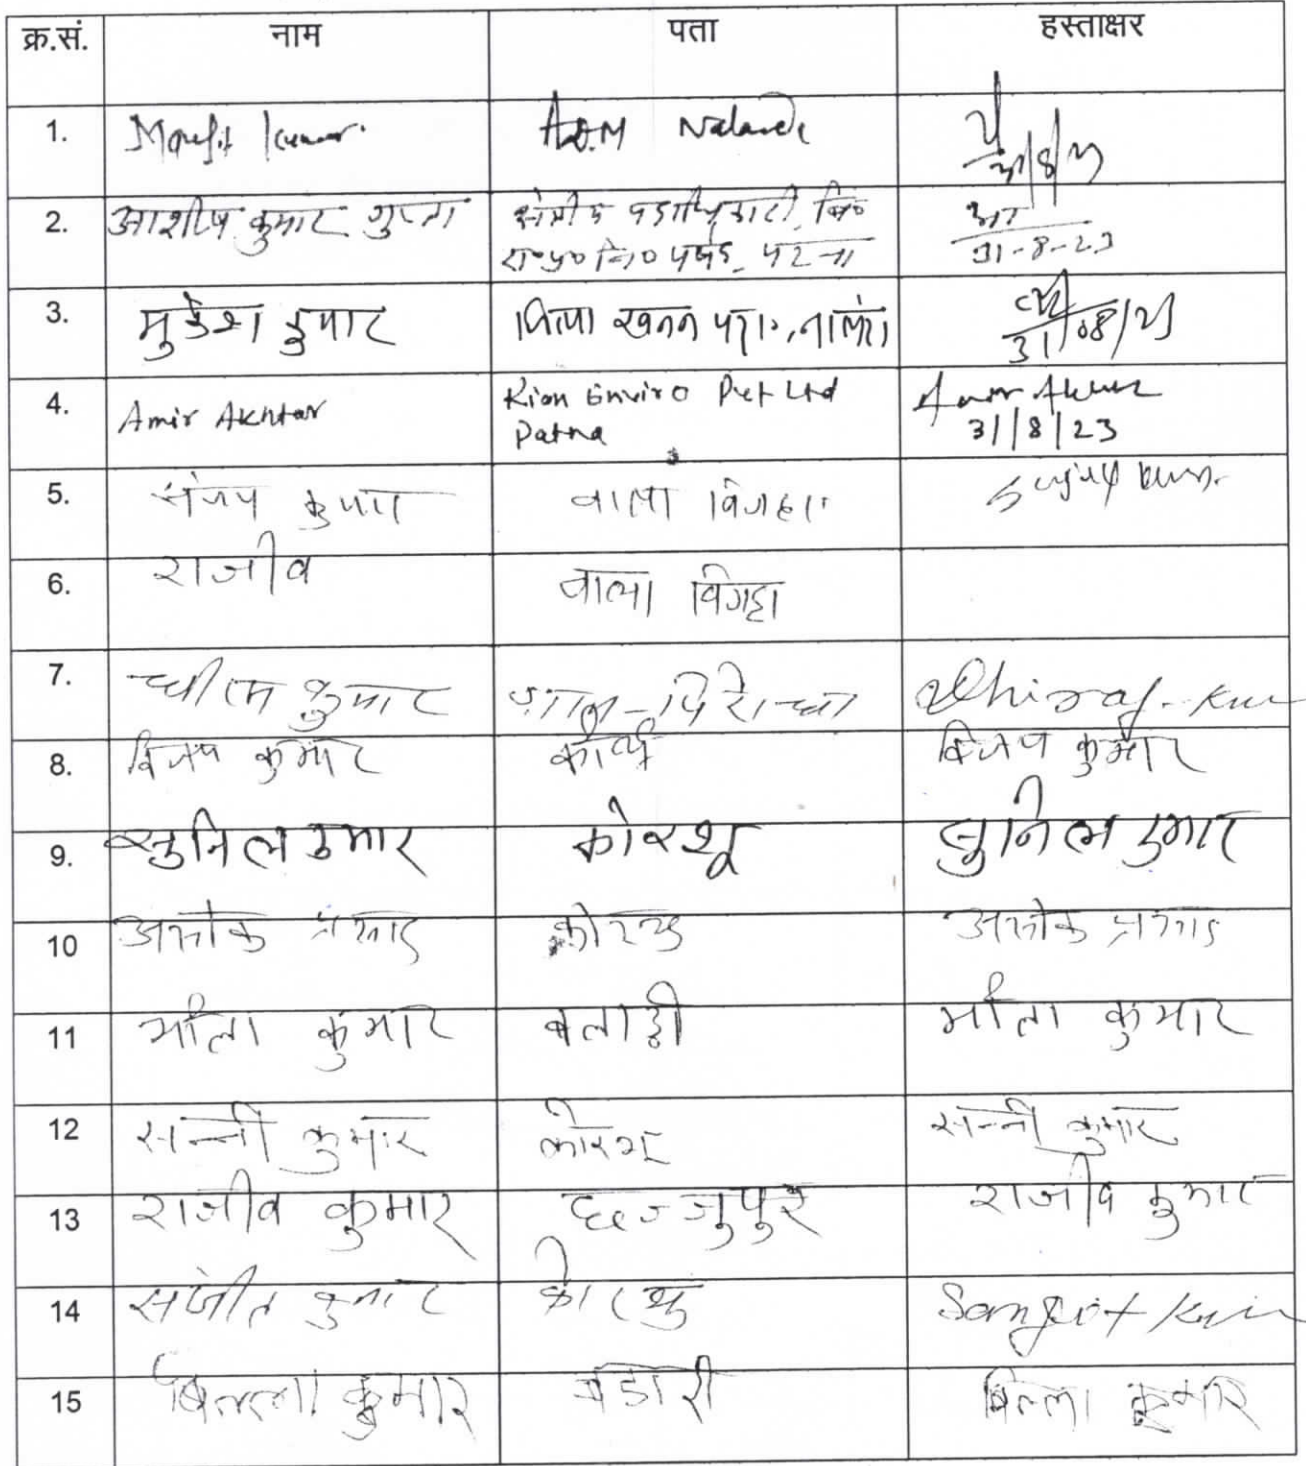 क्र.सं. नाम पता हस्ताक्षर
1. Manjit Kumar A.D.M Nalanda
31/8/23
2. आशीष कुमार गुप्ता क्षेत्रीय पदाधिकारी, बि०
रा०प्र०नि० पर्षद, पटना
31-8-23
3. मुकेश कुमार खनन
31/08/23
4. Amir Akhtar Kion Enviro Pvt Ltd
Patna
Amir Akhtar
31/8/23
5. संजय कुमार बाला विगहा Sanjay Kumar
6. राजीव बाला विगहा
7. कुमार Dhiraj Kum
8. बिजय कुमार बिजय कुमार
9. सुनिल कुमार कोरथू सुनिल कुमार
10 अशोक प्रसाद कोरथु अशोक प्रसाद
11 कुमार कुमार
12 सन्नी कुमार कोरथू सन्नी कुमार
13 राजीव कुमार छज्जुपुर राजीव कुमार
14 संजीत कुमार कोरथु Sanjeet Kum
15 कुमार कुमार